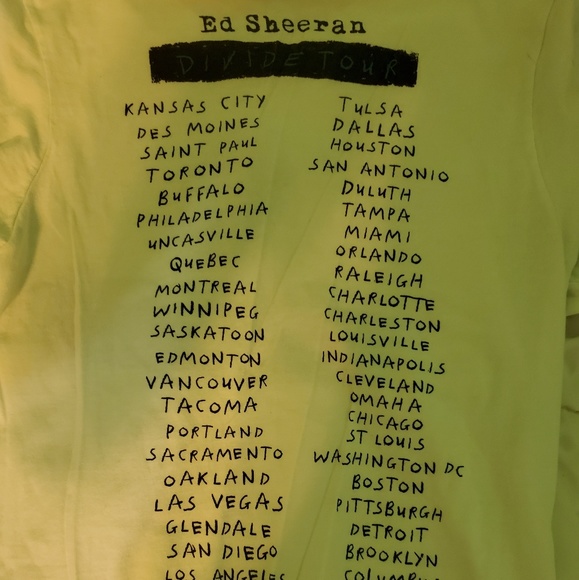 Ed Sheeran
DIVIDE TOUR
KANSAS CITY
DES MOINES
SAINT PAUL
TORONTO
BUFFALO
PHILADELPHIA
UNCASVILLE
QUEBEC
MONTREAL
WINNIPEG
SASKATOON
EDMONTON
VANCOUVER
TACOMA
PORTLAND
SACRAMENTO
OAKLAND
LAS VEGAS
GLENDALE
SAN DIEGO
LOS ANGELES
TULSA
DALLAS
HOUSTON
SAN ANTONIO
DULUTH
TAMPA
MIAMI
ORLANDO
RALEIGH
CHARLOTTE
CHARLESTON
LOUISVILLE
INDIANAPOLIS
CLEVELAND
OMAHA
CHICAGO
ST LOUIS
WASHINGTON DC
BOSTON
PITTSBURGH
DETROIT
BROOKLYN
COLUMBUS